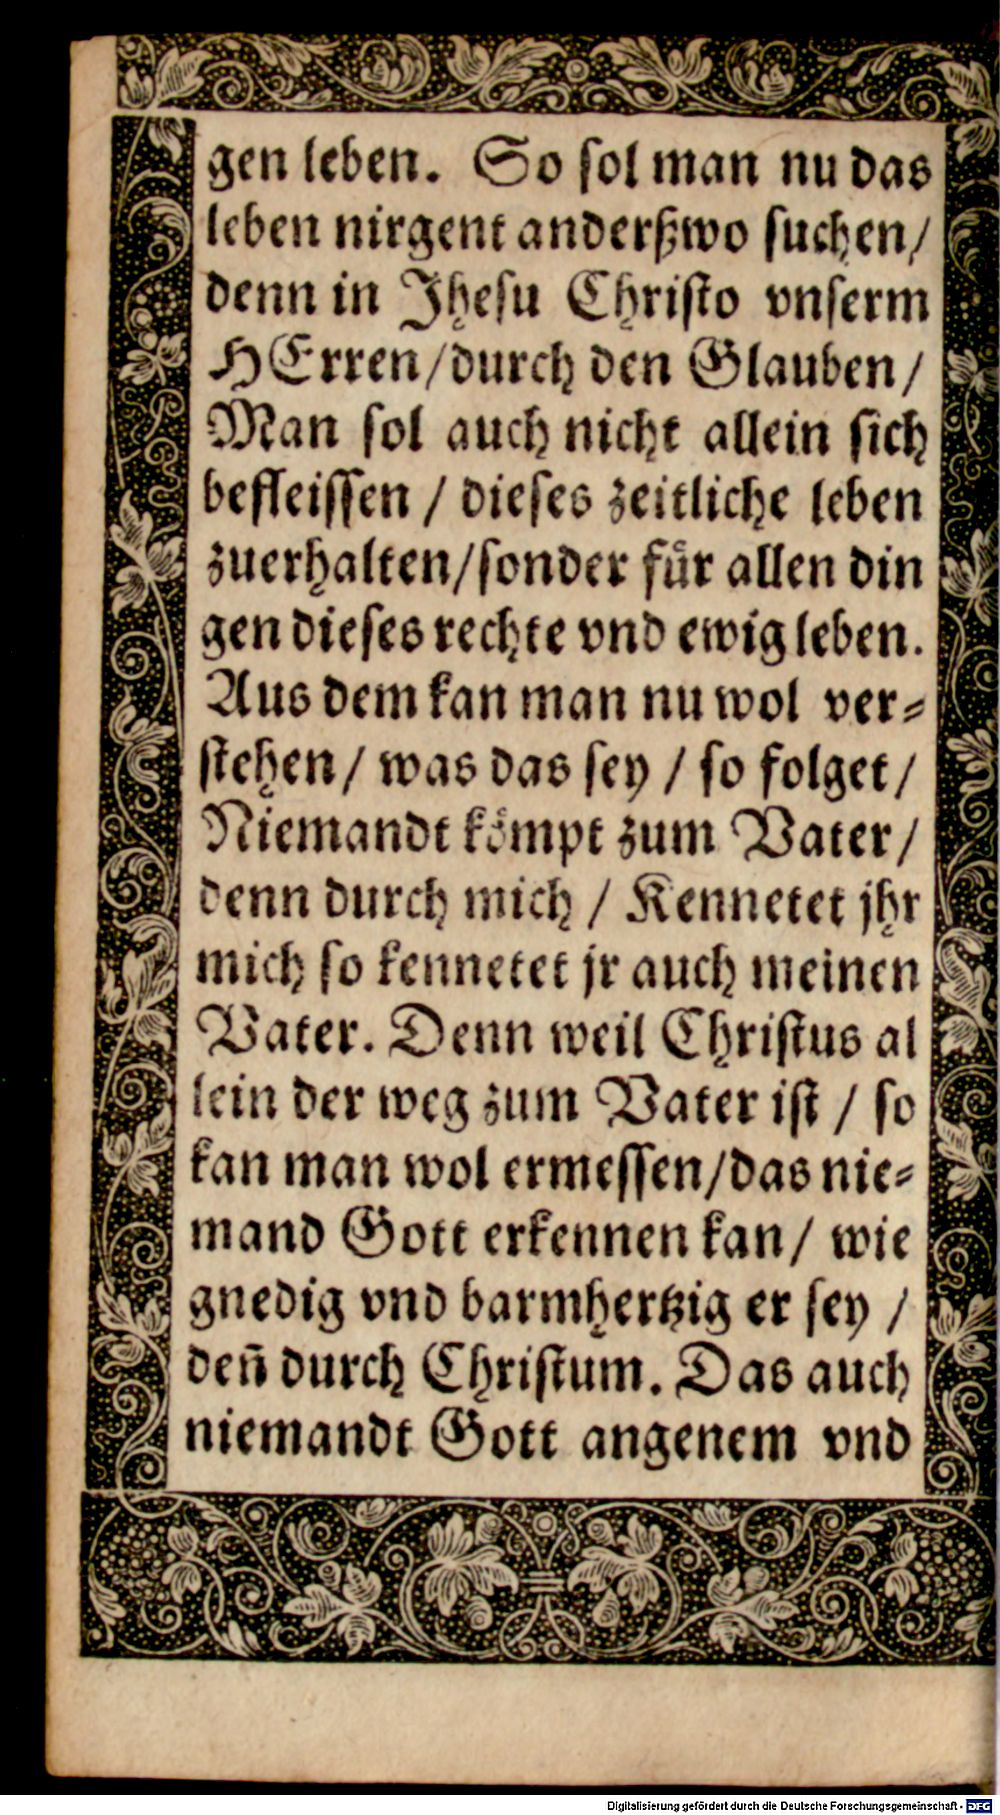 gen leben. So sol man nu das
leben nirgent anderßwo suchen/
denn in Jhesu Christo vnserm
HErren/durch den Glauben/
Man sol auch nicht allein sich
befleissen / dieses zeitliche leben
zuerhalten/sonder fuͤr allen din
gen dieses rechte vnd ewig leben.
Aus dem kan man nu wol ver⸗
stehen/ was das sey / so folget/
Niemandt koͤmpt zum Vater/
denn durch mich / Kennetet jhr
mich so kennetet jr auch meinen
Vater. Denn weil Christus al
lein der weg zum Vater ist / so
kan man wol ermessen/das nie⸗
mand Gott erkennen kan/ wie
gnedig vnd barmhertzig er sey /
deñ durch Christum. Das auch
niemandt Gott angenem vnd
Digitalisierung gefördert durch die Deutsche Forschungsgemeinschaft - DFG